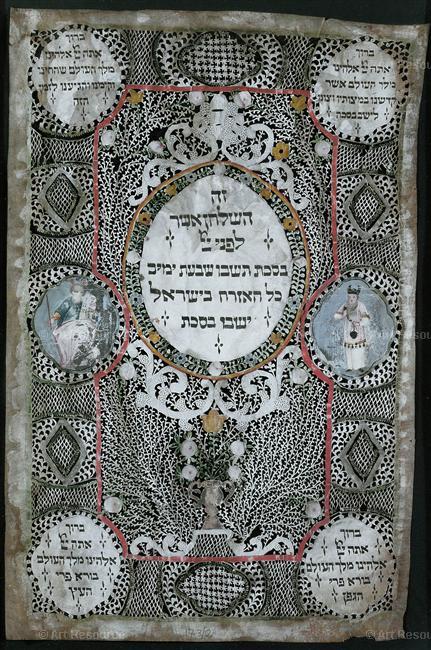 ברוך
אתה יי אלהינו
מלך העולם אשר
קדשנו במצותיו וצונו
לישב בסכה
ברוך
אתה יי אלהינו
מלך העולם שהחינו
וקימנו והגיענו לזמן
הזה
זה
השלחן אשר
לפני יי
בסכת תשבו שבעת ימים
כל האזרח בישראל
ישבו בסכת
ברוך
אתה יי
אלהינו מלך העולם
בורא פרי
הגפן
ברוך
אתה יי
אלהינו מלך העולם
בורא פרי
העץ
© Art Resource
© Art Resource